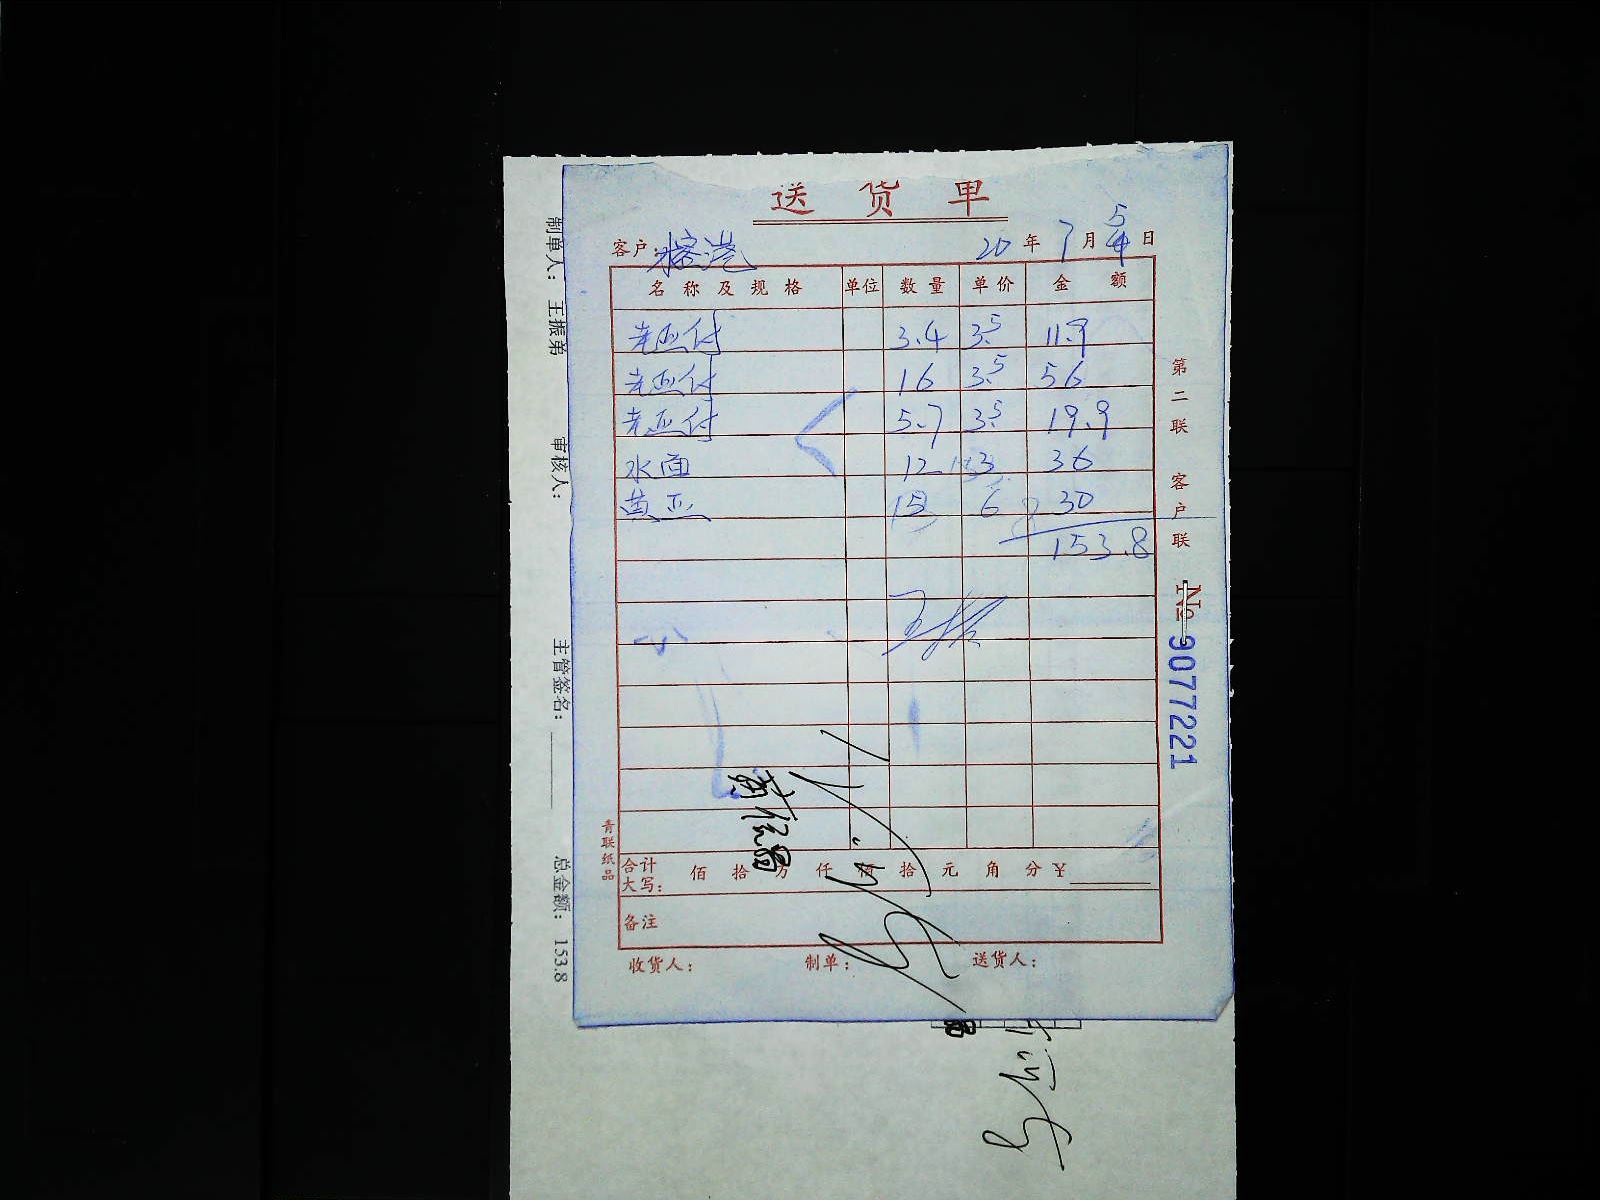 送货单
客户：榕港 20年7月5日
名称及规格 单位 数量 单价 金额
老豆付 3.4 3.5 11.9
老豆付 16 3.5 56
老豆付 5.7 3.5 19.9
水面 12 3 36
黄豆 15 6 30
153.8
合计大写： 佰 拾 万 仟 百 拾 元 角 分 ￥
备注
收货人： 制单： 送货人：
青联纸品
第二联 客户联
№ 9077221
制单人： 王振弟 审核人： 主管签名： 总金额： 153.8